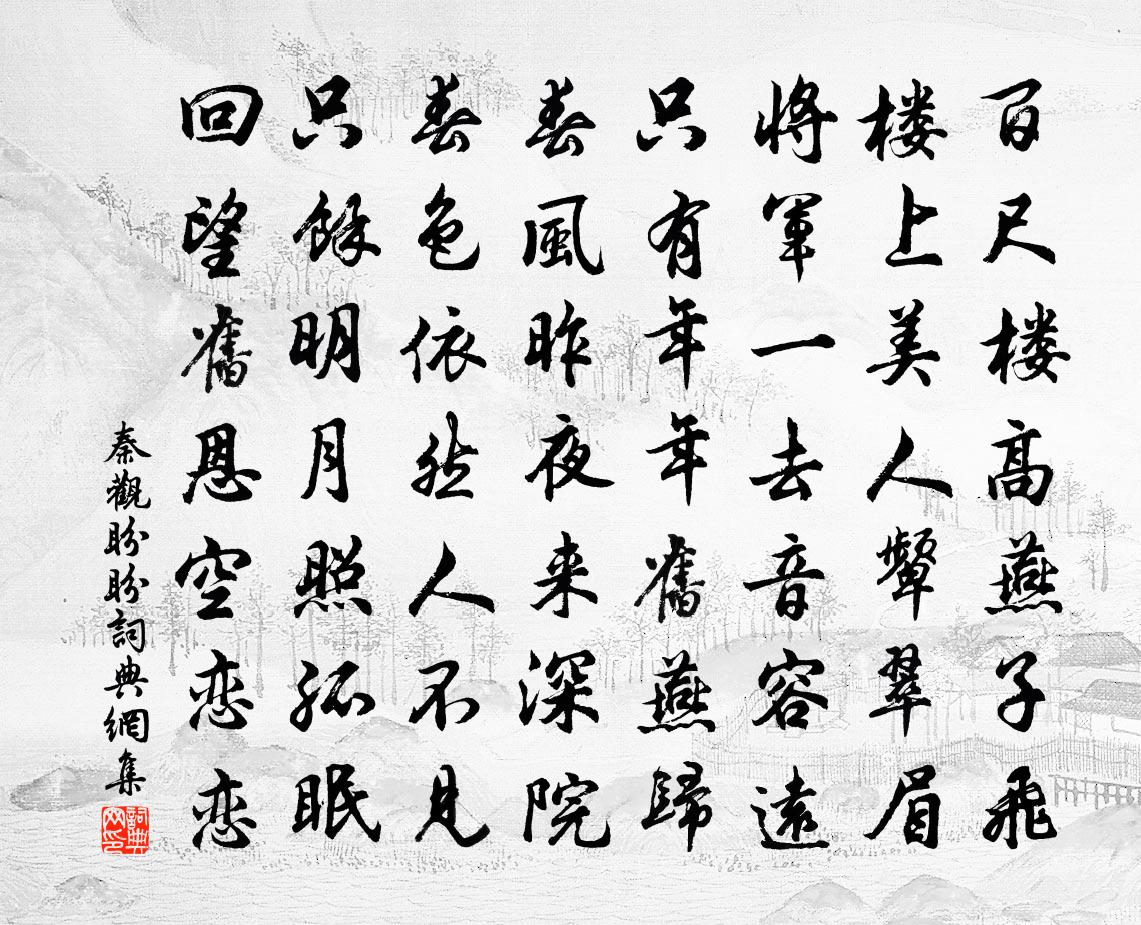 百尺楼高燕子飛
楼上美人顰翠眉
將軍一去音容遠
只有年年舊燕歸
春風昨夜来深院
春色依然人不見
只餘明月照孤眠
回望舊恩空恋恋
秦觀盼盼詞典網集
詞典网印